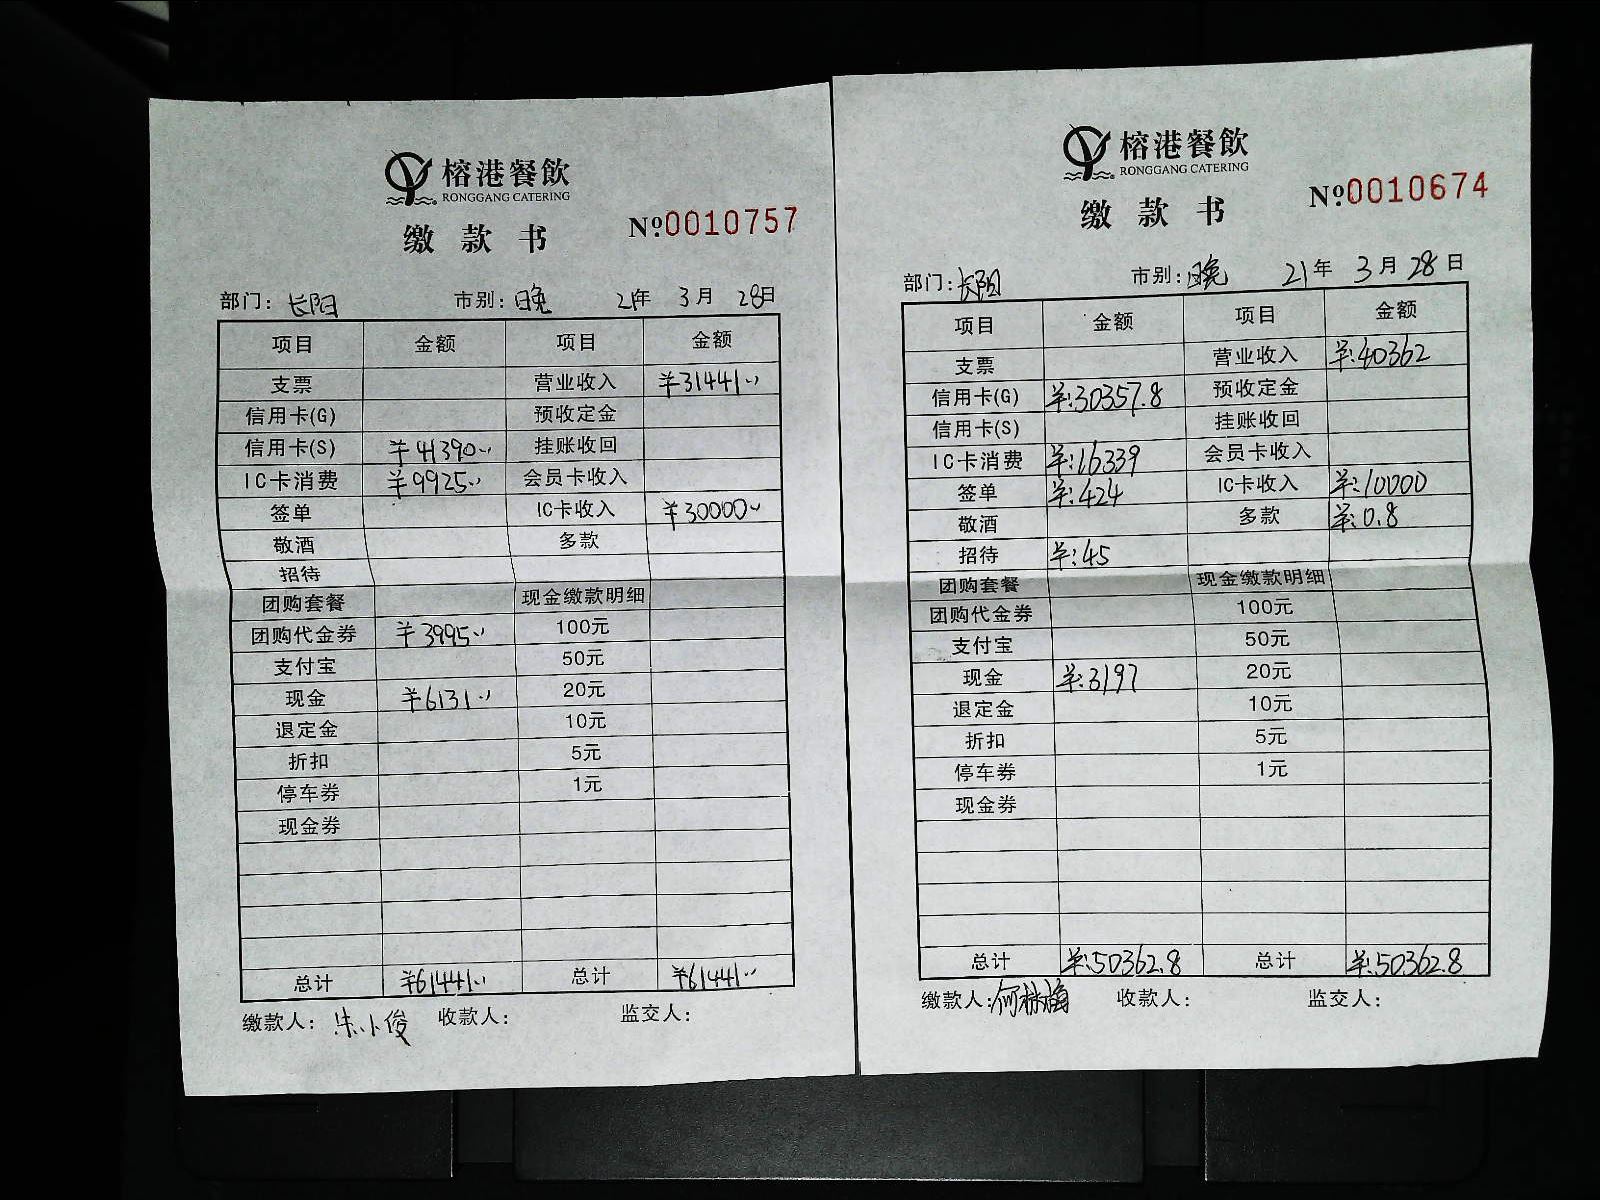 榕港餐飲
RONGGANG CATERING
缴款书
№0010757
部门：长阳 市别：晚 21年 3月 28日
项目 金额 项目 金额
支票 营业收入 ¥31441..
信用卡(G) 预收定金
信用卡(S) ¥41390.. 挂账收回
IC卡消费 ¥9925.. 会员卡收入
签单 IC卡收入 ¥30000..
敬酒 多款
招待
团购套餐 现金缴款明细
团购代金券 ¥3995.. 100元
支付宝 50元
现金 ¥6131.. 20元
退定金 10元
折扣 5元
停车券 1元
现金券
总计 ¥61441.. 总计 ¥61441..
缴款人：朱小俊 收款人： 监交人：
榕港餐飲
RONGGANG CATERING
缴款书
№0010674
部门：长阳 市别：晚 21年 3月 28日
项目 金额 项目 金额
支票 营业收入 ¥:40362
信用卡(G) ¥:30357.8 预收定金
信用卡(S) 挂账收回
IC卡消费 ¥:16339 会员卡收入
签单 ¥:424 IC卡收入 ¥:10000
敬酒 多款 ¥:0.8
招待 ¥:45
团购套餐 现金缴款明细
团购代金券 100元
支付宝 50元
现金 ¥:3197 20元
退定金 10元
折扣 5元
停车券 1元
现金券
总计 ¥:50362.8 总计 ¥:50362.8
缴款人：何林梅 收款人： 监交人：